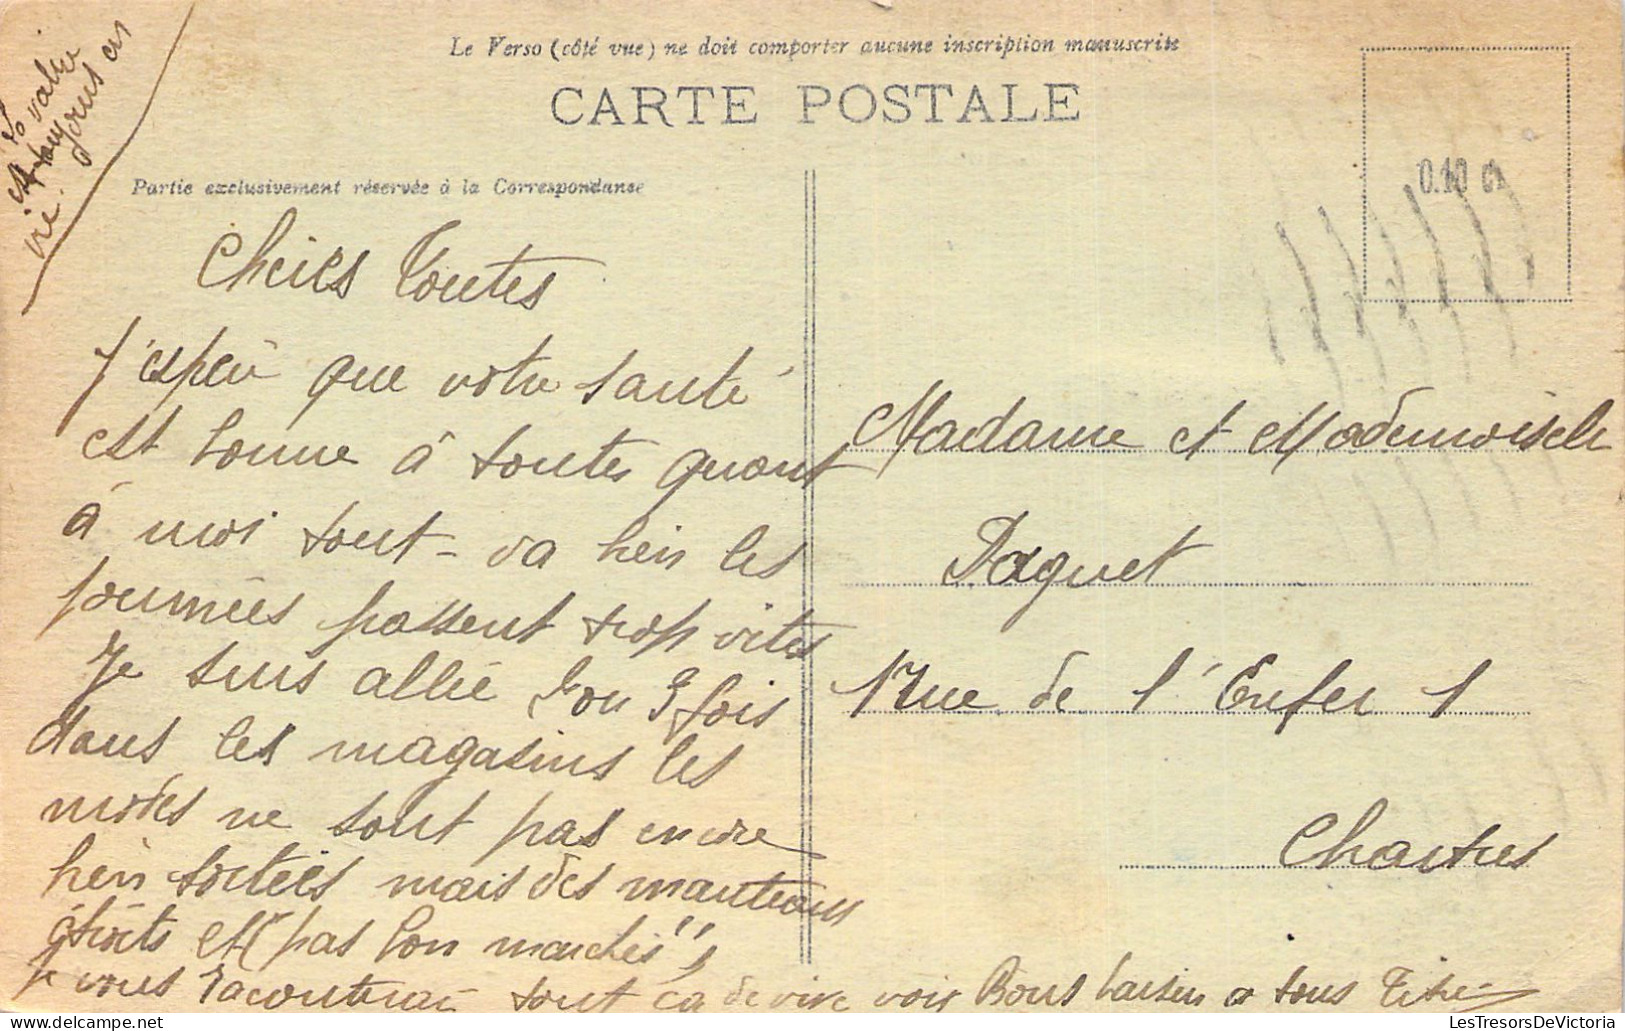 Le Verso (côté vue) ne doit comporter aucune inscription manuscrite
CARTE POSTALE
Partie exclusivement réservée à la Correspondance
0.10 c
La valise
est toujours en
vie.
Cheres Toutes
J'espère que votre santé
est bonne à toutes quant
à moi tout va bien les
journées passent trop vites
Je suis allée 2 ou 3 fois
dans les magasins les
modes ne sont pas encore
bien sorties mais des manteaux
étroits et "pas bon marchés",
Je vous raconterai tout ça de vive voix Bons baisers a tous
Madame et Mademoiselle
Paquet
1 rue de l'Enfer 1
Chartres
LesTresorsDeVictoria